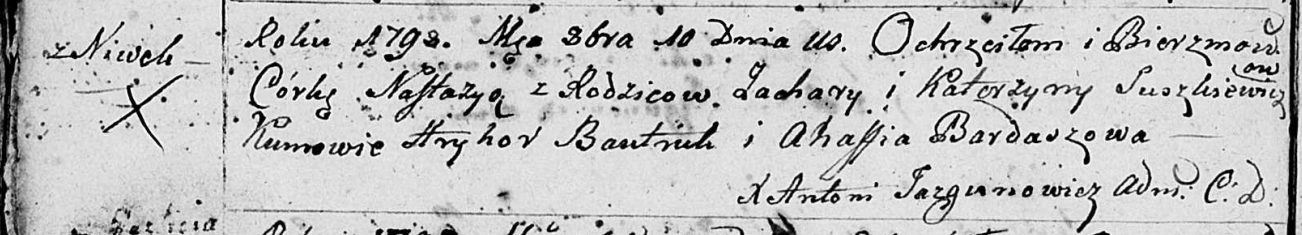 z Niwek
Roku 1798. Mca 8bra 10 Dnia us. Ochrzciłem i Bierzmow.
Córkę Nastazyą z Rodzicow Zachary i Katerzyny Suszkiewiczow
Kumowie Hryhor Bautruk i Ahaffia Bardaszowa
X Antoni Jazgunowicz Adm: C: D: